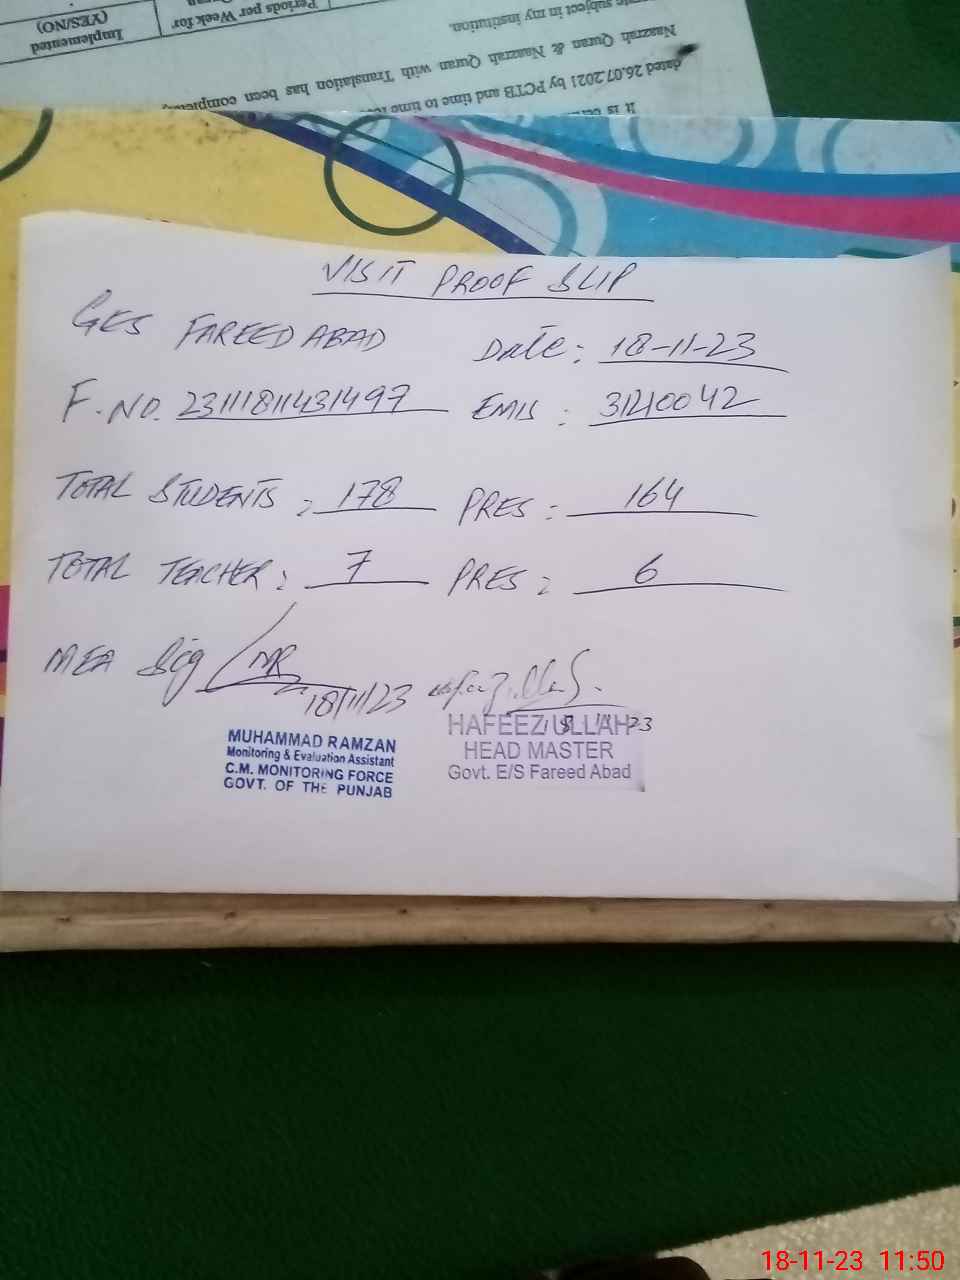 Implemented
(YES/NO)
Periods per Week for
subject in my institution.
Naazrah Quran & Naazrah Quran with Translation has been
dated 26.07.2021 by PCTB and time to time
It is
VISIT PROOF SLIP
GES FAREED ABAD Date: 18-11-23
F.NO. 23111811431497 EMIS: 31210042
TOTAL STUDENTS: 178 PRES: 164
TOTAL TEACHER: 7 PRES: 6
MEA Sig MR 18/11/23
MUHAMMAD RAMZAN
Monitoring & Evaluation Assistant
C.M. MONITORING FORCE
GOVT. OF THE PUNJAB
18 11 23
HAFEEZ ULLAH
HEAD MASTER
Govt. E/S Fareed Abad
18-11-23 11:50